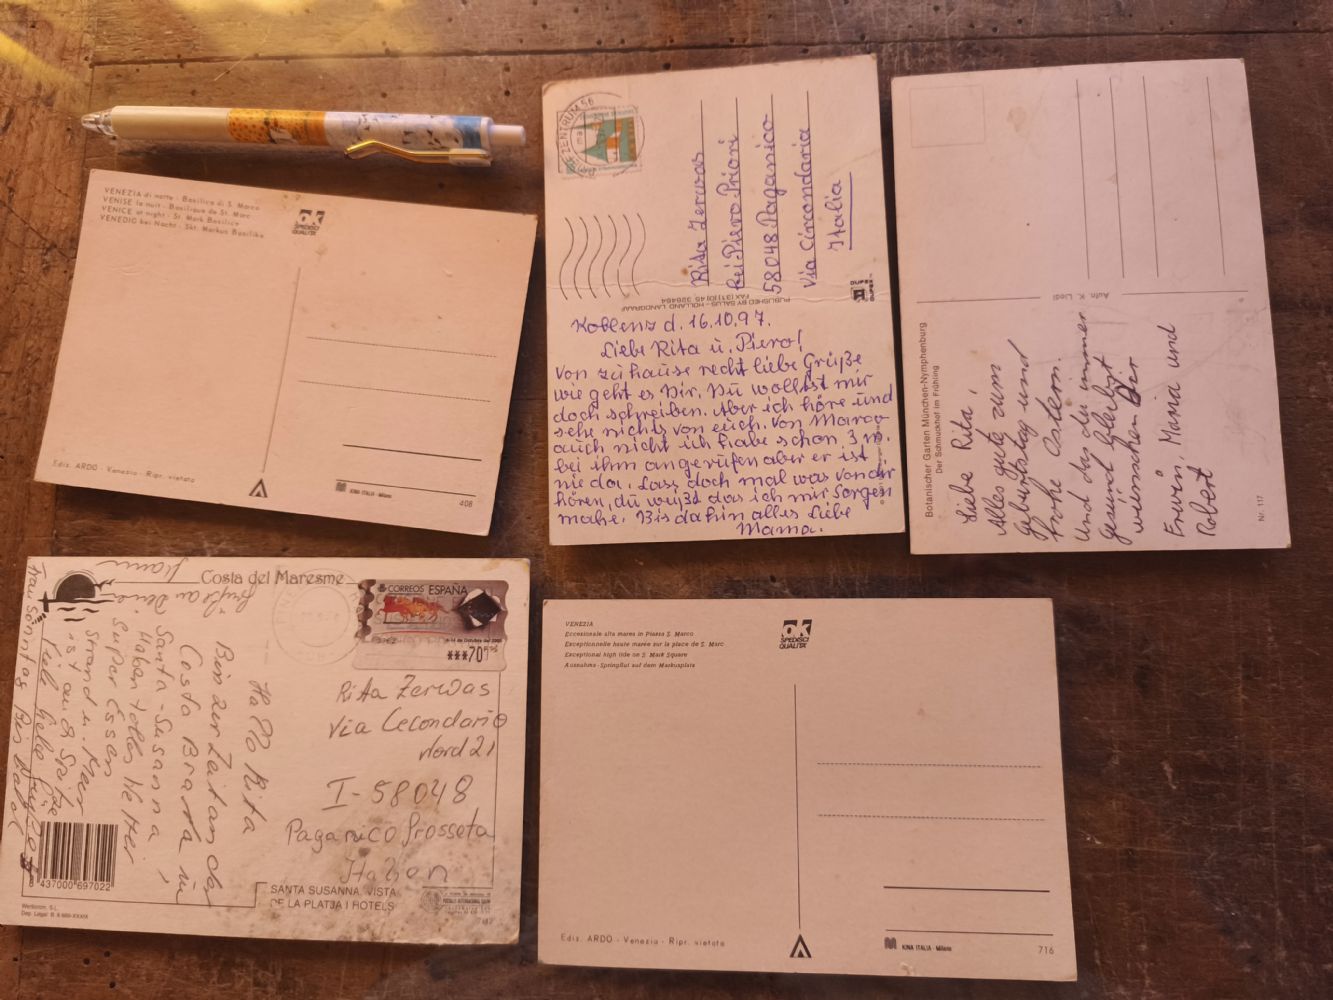 VENEZIA di notte - Basilica di S. Marco
VENISE la nuit - Basilique de St. Marc
VENICE at night - St. Mark Basilica
VENEDIG bei Nacht - Skt. Markus Basilika
OK
SPEDISCI
QUALITÀ
Ediz. ARDO - Venezia - Ripr. vietata
KINA ITALIA - Milano
408
ZENTRUM 56
Rita Zerwas
bei Piero Priori
58048 Paganico
Via Circondaria
Italia
PUBLISHED BY SALUS - HOLLAND, LANDGRAAF
FAX (31)(0)45 326464
DUPEX
DUPEX
Koblenz d. 16.10.97.
Liebe Rita u. Piero!
Von zuhause recht liebe Grüße
wie geht es Dir. Du wolltst mir
doch schreiben. Aber ich höre und
sehe nichts von euch. Von Marco
auch nicht ich habe schon 3 m.
bei ihm angerufen aber er ist
nie da. Lass doch mal was von dir
hören, du weißt das ich mir Sorgen
mahe. Bis dahin alles Liebe
Mama.
Aufn. K. Liedl
Botanischer Garten München-Nymphenburg
Der Schmuckhof im Frühling
Liebe Rita,
Alles gute zum
geburtstag und
frohe Ostern.
Und das du immer
gesund bleibst
wünschen Dir
Erwin, Maria und
Robert
Nr. 117
Costa del Maresme
CORREOS ESPAÑA
***70
Hallo Rita
Bin zur Zeit an der
Costa Brava in
Santa-Susanna,
Haben tolles Wetter
super Essen
Strand u. Meer
ist auch Spitze
Viele liebe Grüße
Grüße an Deine
Rita Zerwas
Via Cecondario
Nord 21
I-58048
Paganico Grosseta
Italien
8 437000 697022
SANTA SUSANNA. VISTA
DE LA PLATJA I HOTELS
VENEZIA
Eccezionale alta marea in Piazza S. Marco
Exceptionnelle haute marée sur la place de S. Marc
Exceptional high tide on S. Mark Square
Ausnahms-Springflut auf dem Markusplatz
OK
SPEDISCI
QUALITÀ
Ediz. ARDO - Venezia - Ripr. vietata
KINA ITALIA - Milano
716